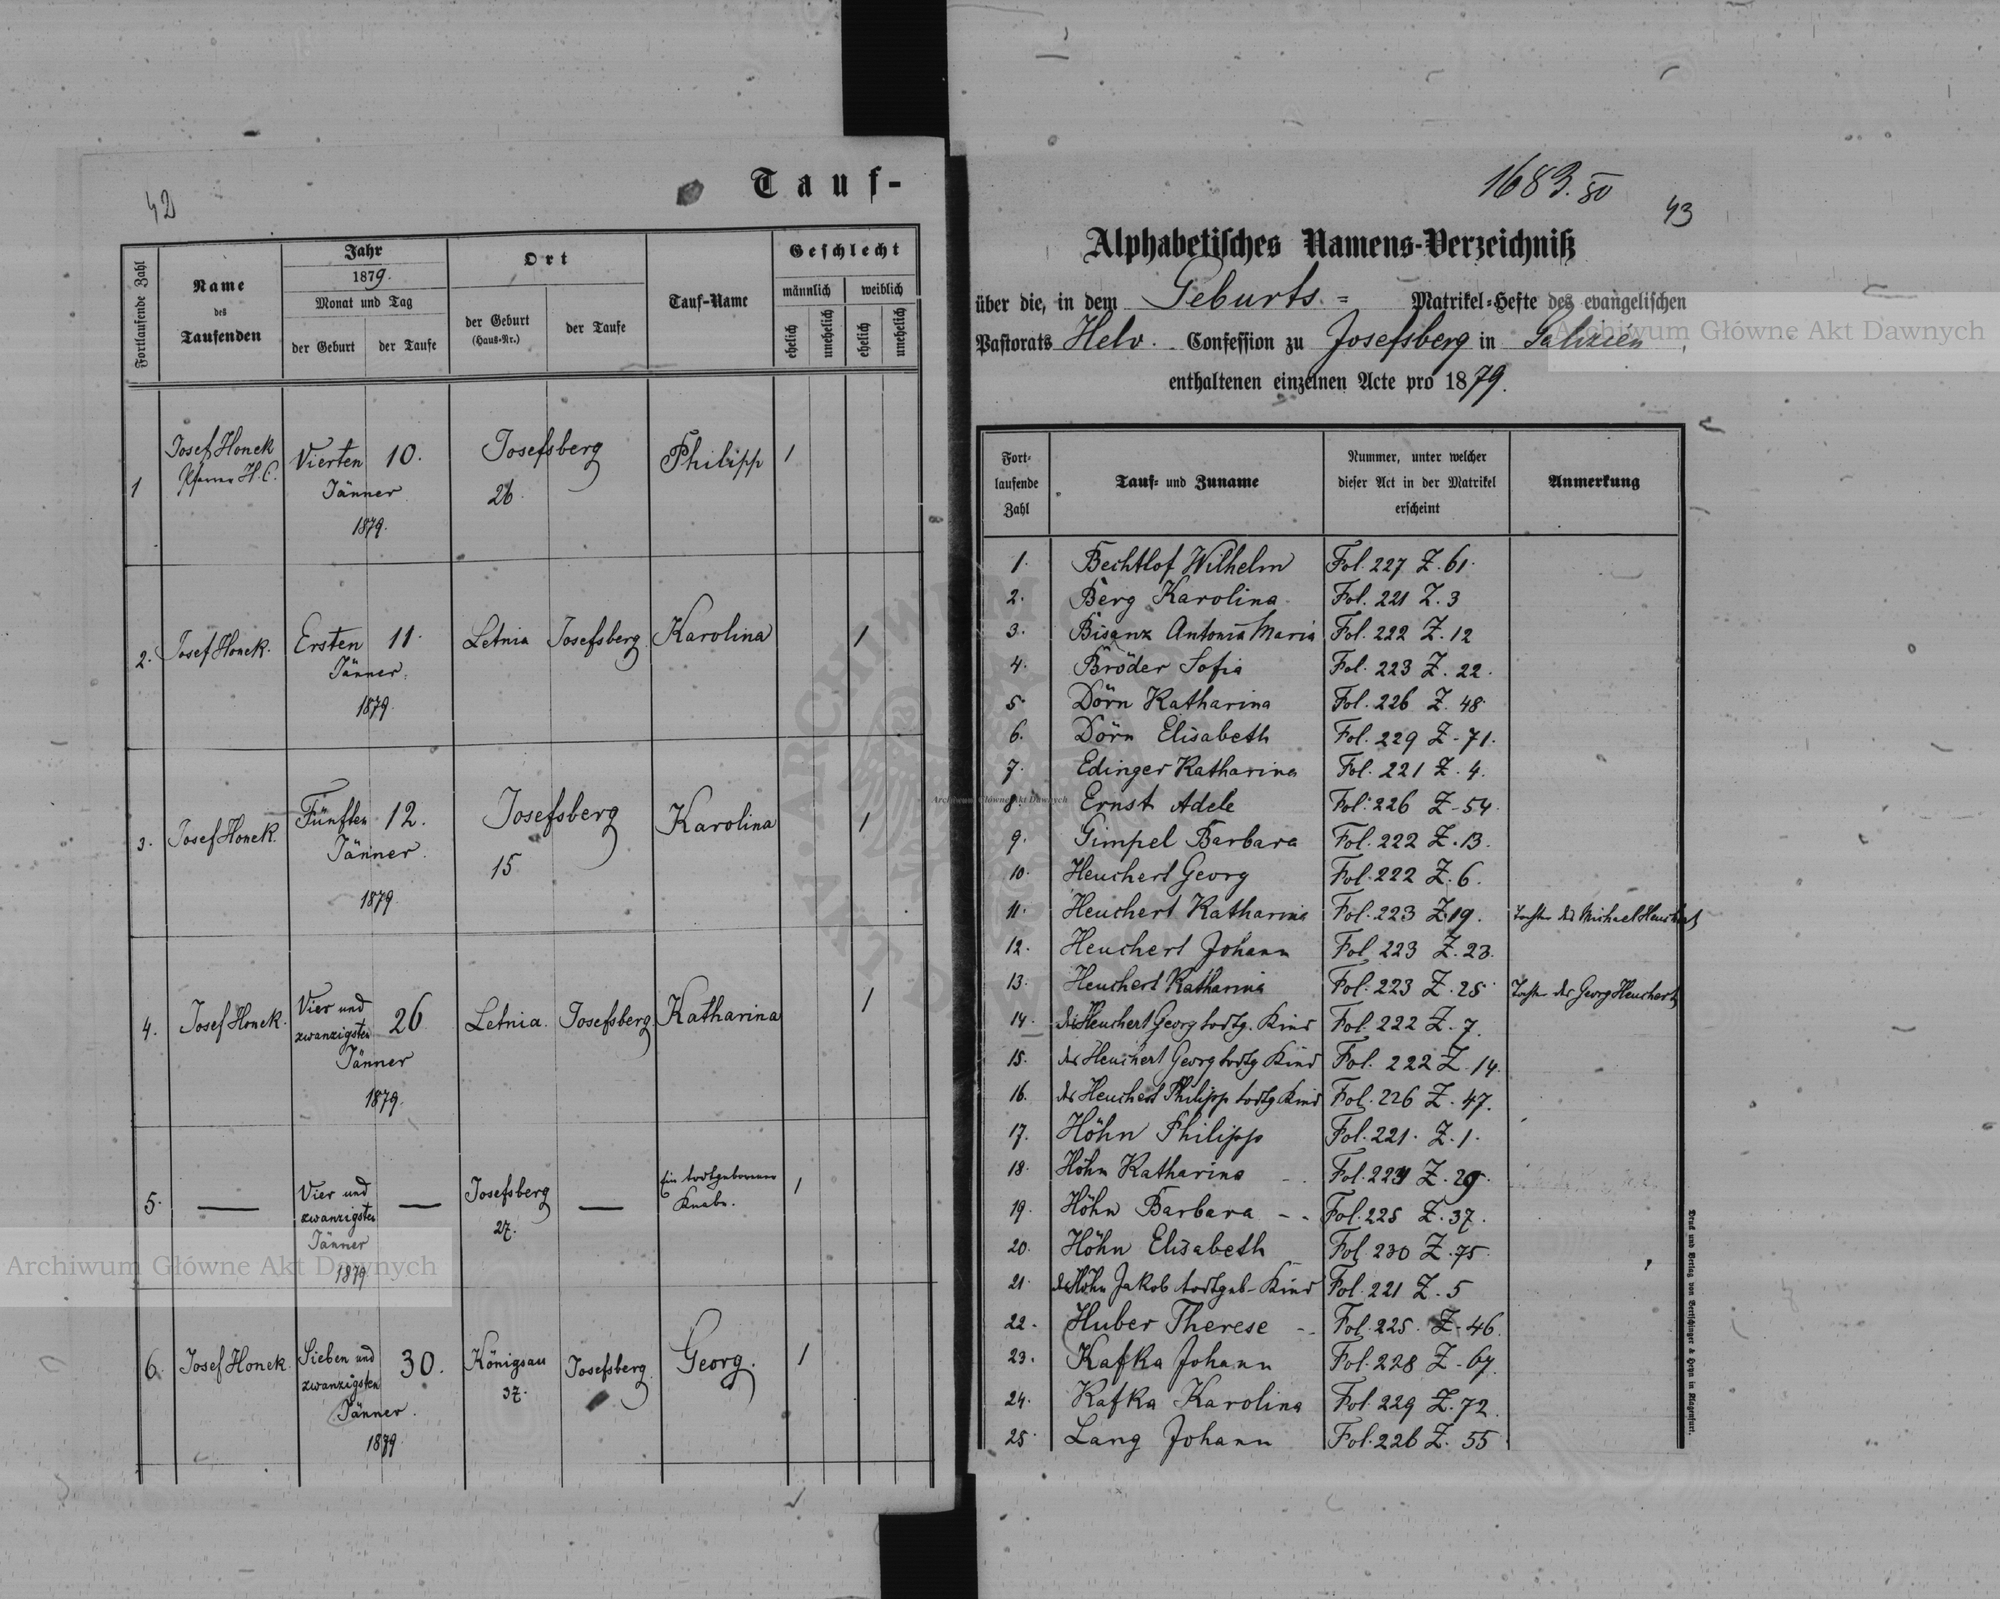 42
Tauf-
Fortlaufende Zahl
Name
des
Taufenden
Jahr
1879.
Monat und Tag
der Geburt
der Taufe
Ort
der Geburt
(Haus-Nr.)
der Taufe
Tauf-Name
Geschlecht
männlich
weiblich
ehelich
unehelich
ehelich
unehelich
1
Josef Honek
Pfarrer H.C.
Vierten 10.
Jänner
1879.
Josefsberg
26.
Philipp
1
2. Josef Honek. Ersten 11. Letnia Josefsberg Karolina 1
Jänner.
1879.
3. Josef Honek. Fünften 12. Josefsberg Karolina 1
Jänner.
15
1879.
4. Josef Honek. Vier und 26 Letnia. Josefsberg. Katharina 1
zwanzigsten
Jänner
1879.
5. — Vier und — Josefsberg — Ein todtgeborener 1
zwanzigsten 27. Knabe.
Jänner
1879
6. Josef Honek. Sieben und 30. Königsau Josefsberg. Georg. 1
zwanzigsten 37.
Jänner.
1879
1683.80
43
Alphabetisches Namens-Verzeichniß
über die, in dem Geburts = Matrikel-Hefte des evangelischen
Pastorats Helv. Confession zu Josefsberg in Galizien
enthaltenen einzelnen Acte pro 1879.
Fort-
laufende
Zahl
Tauf- und Zuname
Nummer, unter welcher
dieser Act in der Matrikel
erscheint
Anmerkung
1. Bechtlof Wilhelm Fol. 227 Z. 61.
2. Berg Karolina Fol. 221 Z. 3
3. Bisanz Antonia Maria Fol. 222 Z. 12
4. Bröder Sofia Fol. 223 Z. 22.
5. Dörn Katharina Fol. 226 Z. 48
6. Dörn Elisabeth Fol. 229 Z. 71.
7. Edinger Katharina Fol. 221 Z. 4.
8. Ernst Adele Fol. 226 Z. 54.
9. Gimpel Barbara Fol. 222 Z. 13.
10. Heuchert Georg Fol. 222 Z. 6.
11. Heuchert Katharina Fol. 223 Z. 19. Tochter des Michael Heuchert
12. Heuchert Johann Fol. 223 Z. 23.
13. Heuchert Katharina Fol. 223 Z. 25 Tochter des Georg Heuchert
14. des Heuchert Georg todtg. Kind Fol. 222 Z. 7.
15. des Heuchert Georg todtg Kind Fol. 222 Z. 14.
16. des Heuchert Philipp todtg Kind Fol. 226 Z. 47.
17. Höhn Philipp Fol. 221. Z. 1.
18. Höhn Katharina Fol. Z. 29.
19. Höhn Barbara - - Fol. 225 Z. 37.
20. Höhn Elisabeth Fol. 230 Z. 75.
21. des Höhn Jakob todtgeb- Kind Fol. 221 Z. 5
22. Huber Therese - - Fol. 225. Z. 46.
23. Kafka Johann Fol. 228 Z. 67.
24. Kafka Karolina Fol. 229 Z. 72.
25. Lang Johann Fol. 226 Z. 55
Druck und Verlag von Bertschinger & Heyn in Klagenfurt.
Archiwum Główne Akt Dawnych
Archiwum Główne Akt Dawnych
Archiwum Główne Akt Dawnych